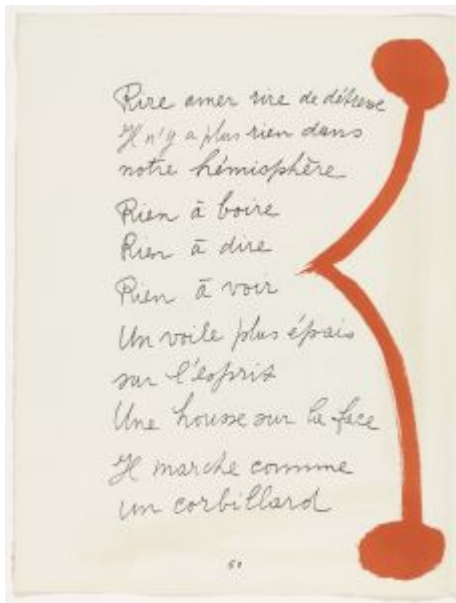 Rire amer rire de détresse
Il n'y a plus rien dans
notre hémisphère
Rien à boire
Rien à dire
Rien à voir
Un voile plus épais
sur l'esprit
Une housse sur la face
Il marche comme
un corbillard